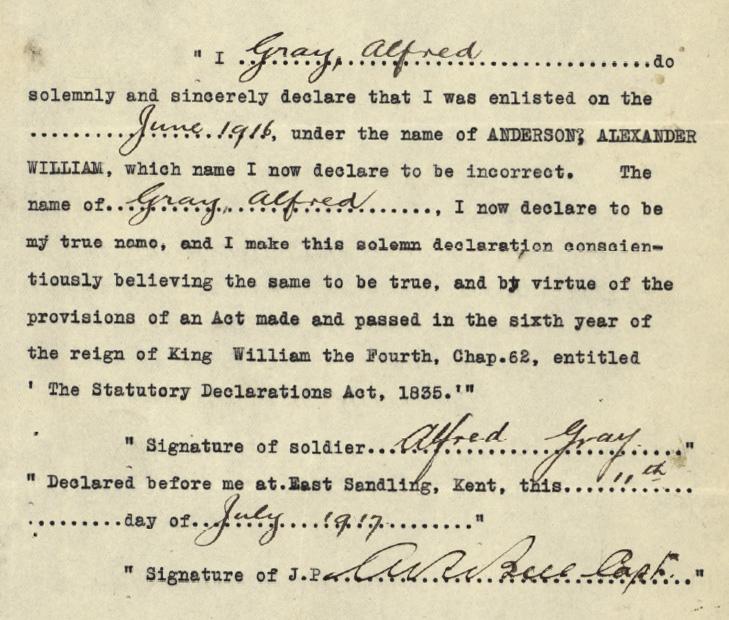 " I ..Gray, Alfred..............................do
solemnly and sincerely declare that I was enlisted on the
..........June 1916, under the name of ANDERSON, ALEXANDER
WILLIAM, which name I now declare to be incorrect. The
name of..Gray, Alfred........, I now declare to be
my true name, and I make this solemn declaration conscien-
tiously believing the same to be true, and by virtue of the
provisions of an Act made and passed in the sixth year of
the reign of King William the Fourth, Chap.62, entitled
' The Statutory Declarations Act, 1835.'"
" Signature of soldier...Alfred Gray....."
" Declared before me at.East Sandling, Kent, this....11th......
.........day of..July....1917.........."
" Signature of J.P. Capt."